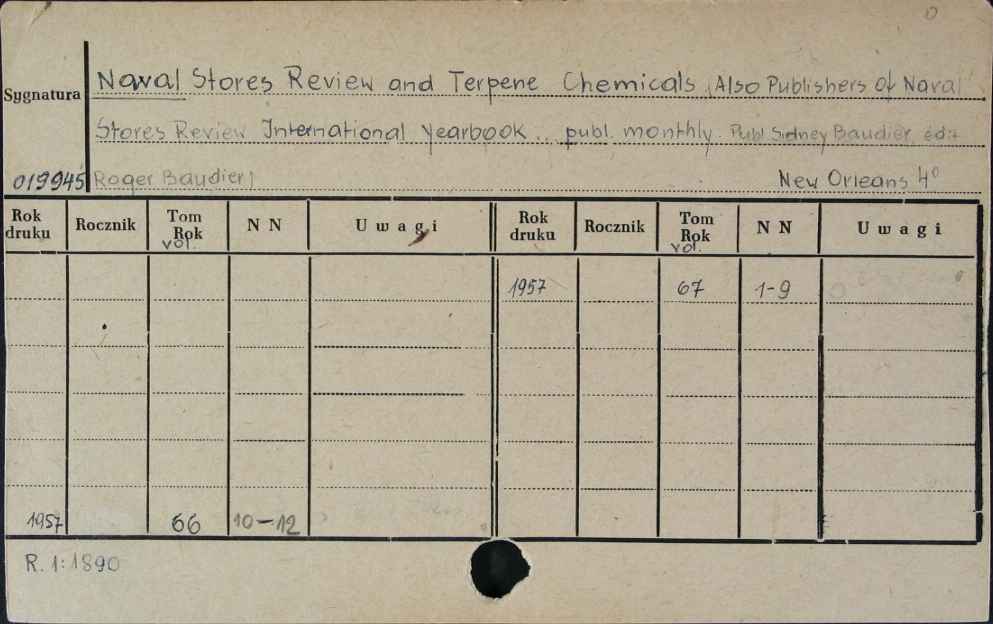 0
Sygnatura Naval Stores Review and Terpene Chemicals, Also Publishers of Naval
Stores Review International Yearbook... publ. monthly. Publ Sidney Baudier, edit
019945 Roger Baudier) New Orleans 4°
Rok druku Rocznik Tom Rok vol. NN Uwagi Rok druku Rocznik Tom Rok vol. NN Uwagi
1957 67 1-9
1957 66 10-12
R. 1:1890